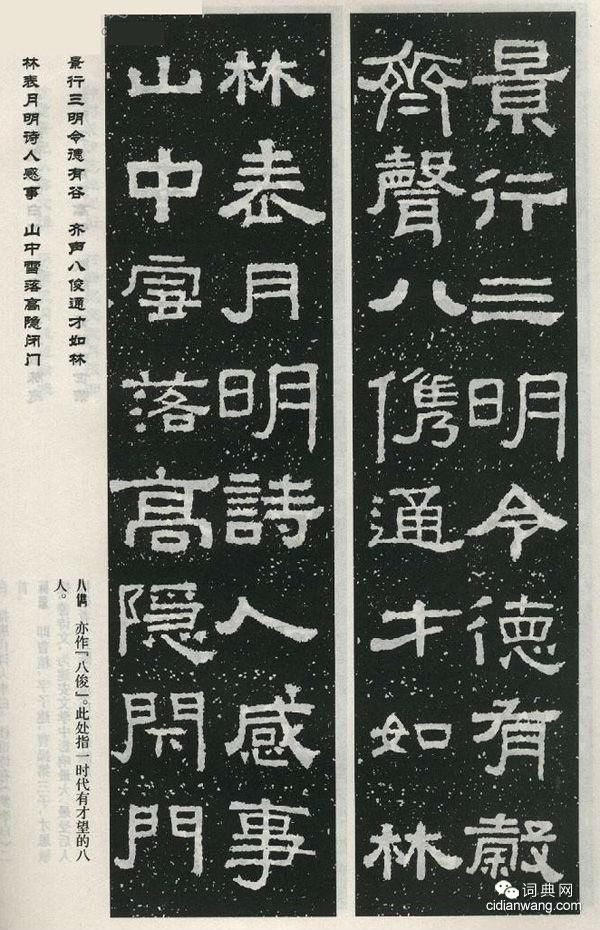 景行三明令德有穀
齊聲八儁通才如林
林表月明詩人感事
山中雪落高隱閇門
景行三明令德有谷　齐声八俊通才如林
林表月明诗人感事　山中雪落高隐闭门
八儁　亦作「八俊」。此处指一时代有才望的八
人。
词典网
cidianwang.com